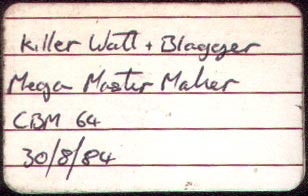 Killer Watt + Blagger
Mega Master Maker
CBM 64
30/8/84